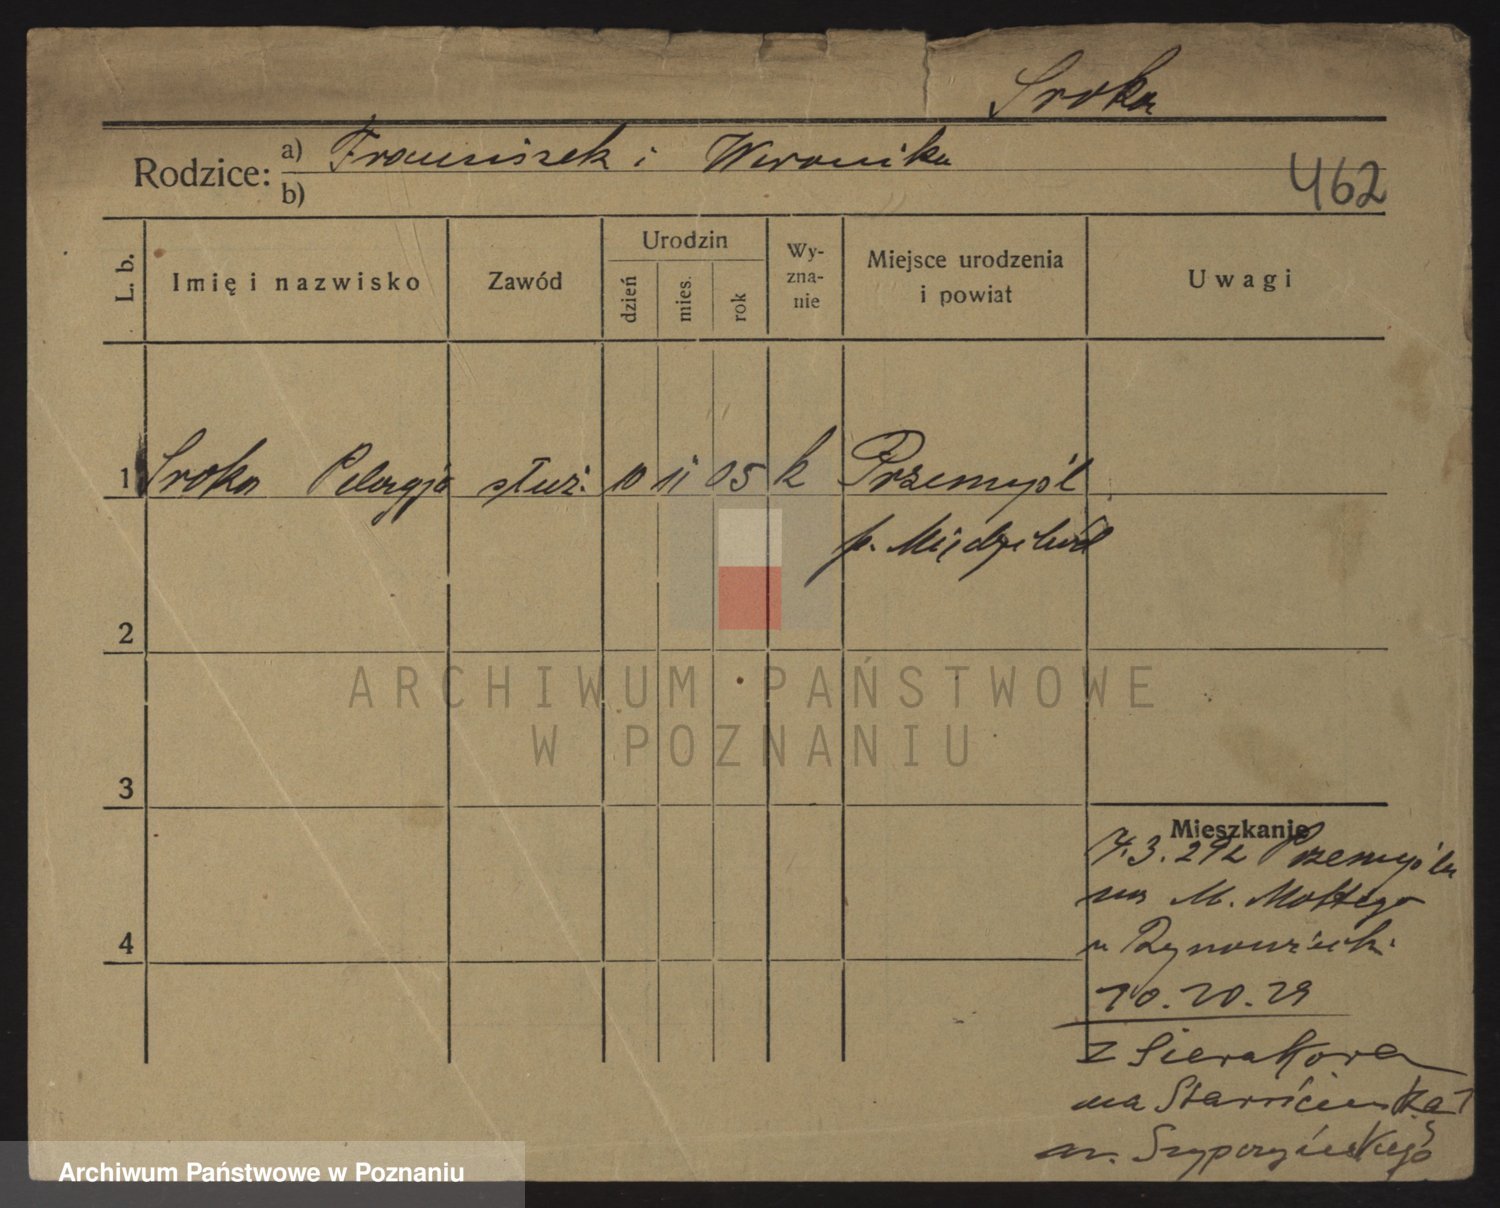 Sroka
Rodzice: a) Franciszek i Weronika
b)
462
L. b.
Imię i nazwisko
Zawód
Urodzin
dzień
mies.
rok
Wy-
zna-
nie
Miejsce urodzenia
i powiat
Uwagi
1 Sroka Pelagja służ. 10 11 05 k Przemyśl
p. Międzychód
2
3
4
Mieszkanie
3. Przemyśla
na M. Mottego
u
10.10.29
z Sierakowa
na 1
u. Szypczyńskiego
ARCHIWUM PAŃSTWOWE
W POZNANIU
Archiwum Państwowe w Poznaniu